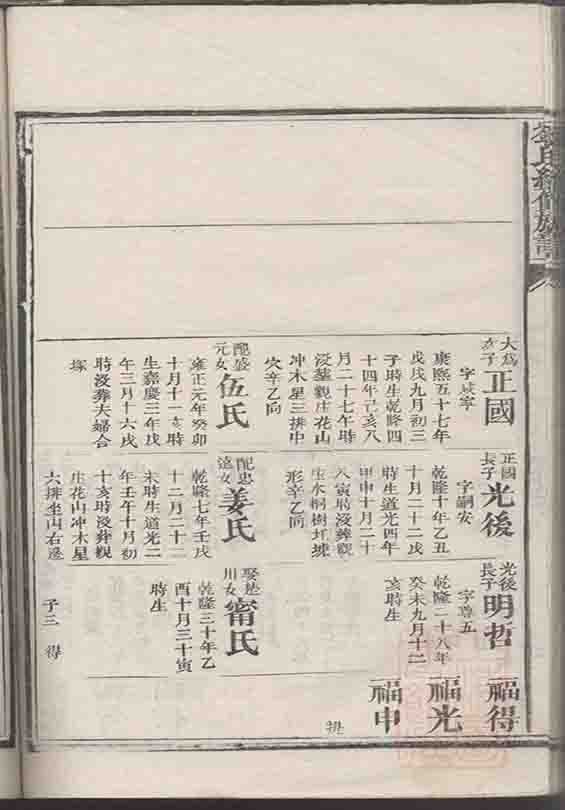 氏續修族譜
大為
次子
正國
字咸寧
康熙五十七年
戊戌九月初三
子時生乾隆四
十四年己亥八
月二十七午時
沒葬觀庄花山
冲木星三排中
穴辛乙向
配盛
元女
伍氏
雍正元年癸卯
十月十一亥時
生嘉慶三年戊
午三月十六戌
時沒葬夫婦合
塚
正國
長子
光後
字嗣安
乾隆十年乙丑
十月二十二戌
時生道光四年
甲申十月二十
八寅時沒葬觀
庄水桐樹圵塽
形辛乙向
配忠
遠女
姜氏
乾隆七年壬戌
十二月二十二
未時生道光二
年壬午十月初
十亥時沒葬觀
庄花山冲木星
六排坐山右邊
子三
得
光後
長子
明哲
字尊五
乾隆二十八年
癸未九月十二
亥時生
娶楚
川女
甯氏
乾隆三十年乙
酉十月三十寅
時生
福得
福光
福申